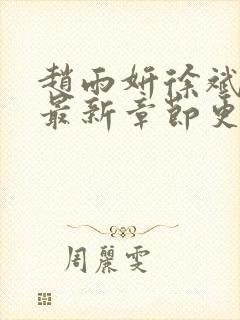 趙雨妍徐斌
最新章節更
周麗雯